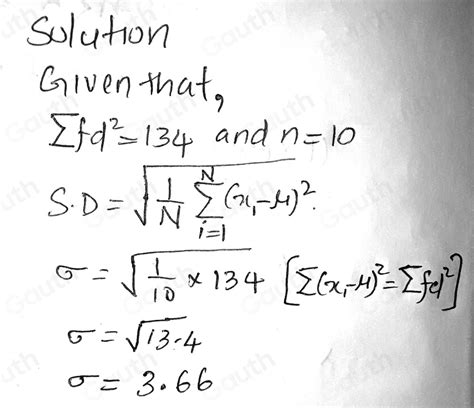 Solution
Given that,
Σfd²=134 and n=10
S.D = √(1/N Σ_{i=1}^{N} (xᵢ-μ)².
σ = √(1/10 × 134) [Σ(xᵢ-μ)²=Σfd²]
σ = √13.4
σ = 3.66